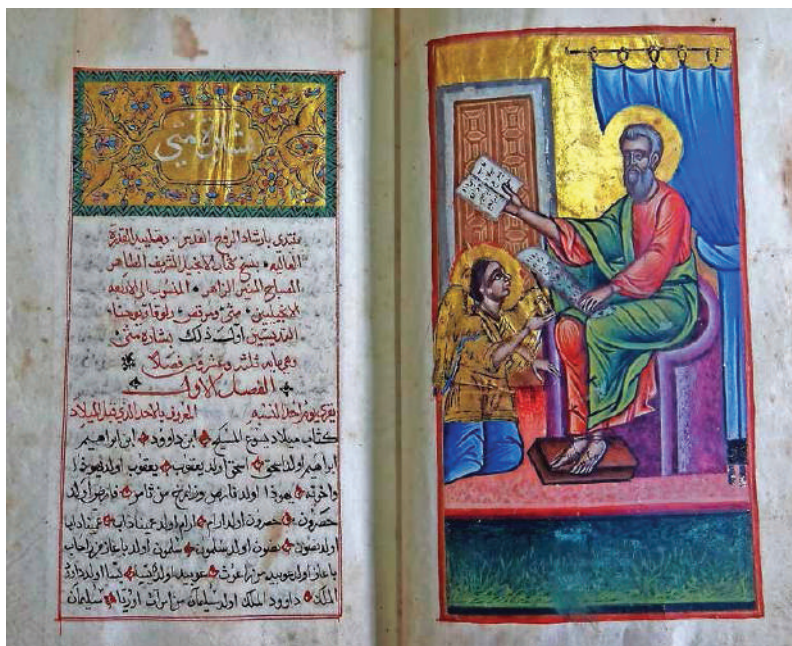 بشارة متى
نبتدي بارشاد الروح القدس القدرة
العاليه • بنسخ كتاب الانجيل الشريف الطاهر
المصباح المنير الزاهر • المنسوب الى الاربعه
الانجيليين • متى ومرقص • ولوقا ويوحنا
القديسين اول ذلك بشارة متى
وهي مايه فصلا
الفصل الاول
يقرى يوم احد النسبه المعروف بالاحد الذي قبل الميلاد
كتاب ميلاد يسوع المسيح ابن داوود ابن ابراهيم
ابراهيم اولد اسحق اسحق اولد يعقوب يعقوب اولد يهوذا
واخوته يهوذا اولد فارص وزارح من ثامر فارص اولد
حصرون حصرون اولد ارام ارام اولد عميناداب عميناداب
اولد نصون نصون اولد سلمون سلمون اولد باعاز من راحاب
باعاز اولد عوبيد من راعوث عوبيد اولد يسا يسا اولد داوود
الملك داوود الملك اولد سليمان من امراة اوريا سليمان